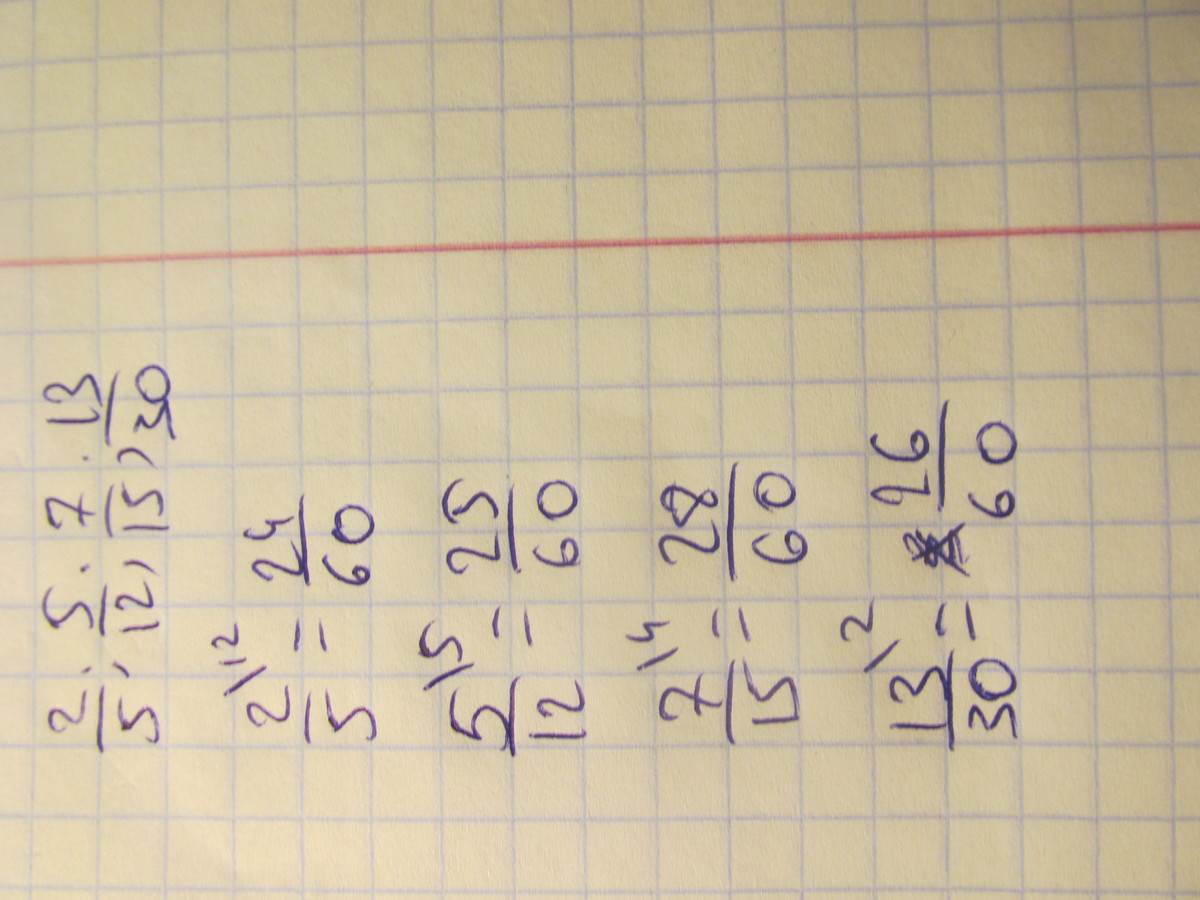 2/5; 5/12; 7/15; 13/30
2\12/5 = 24/60
5\5/12 = 25/60
7\4/15 = 28/60
13\2/30 = 26/60